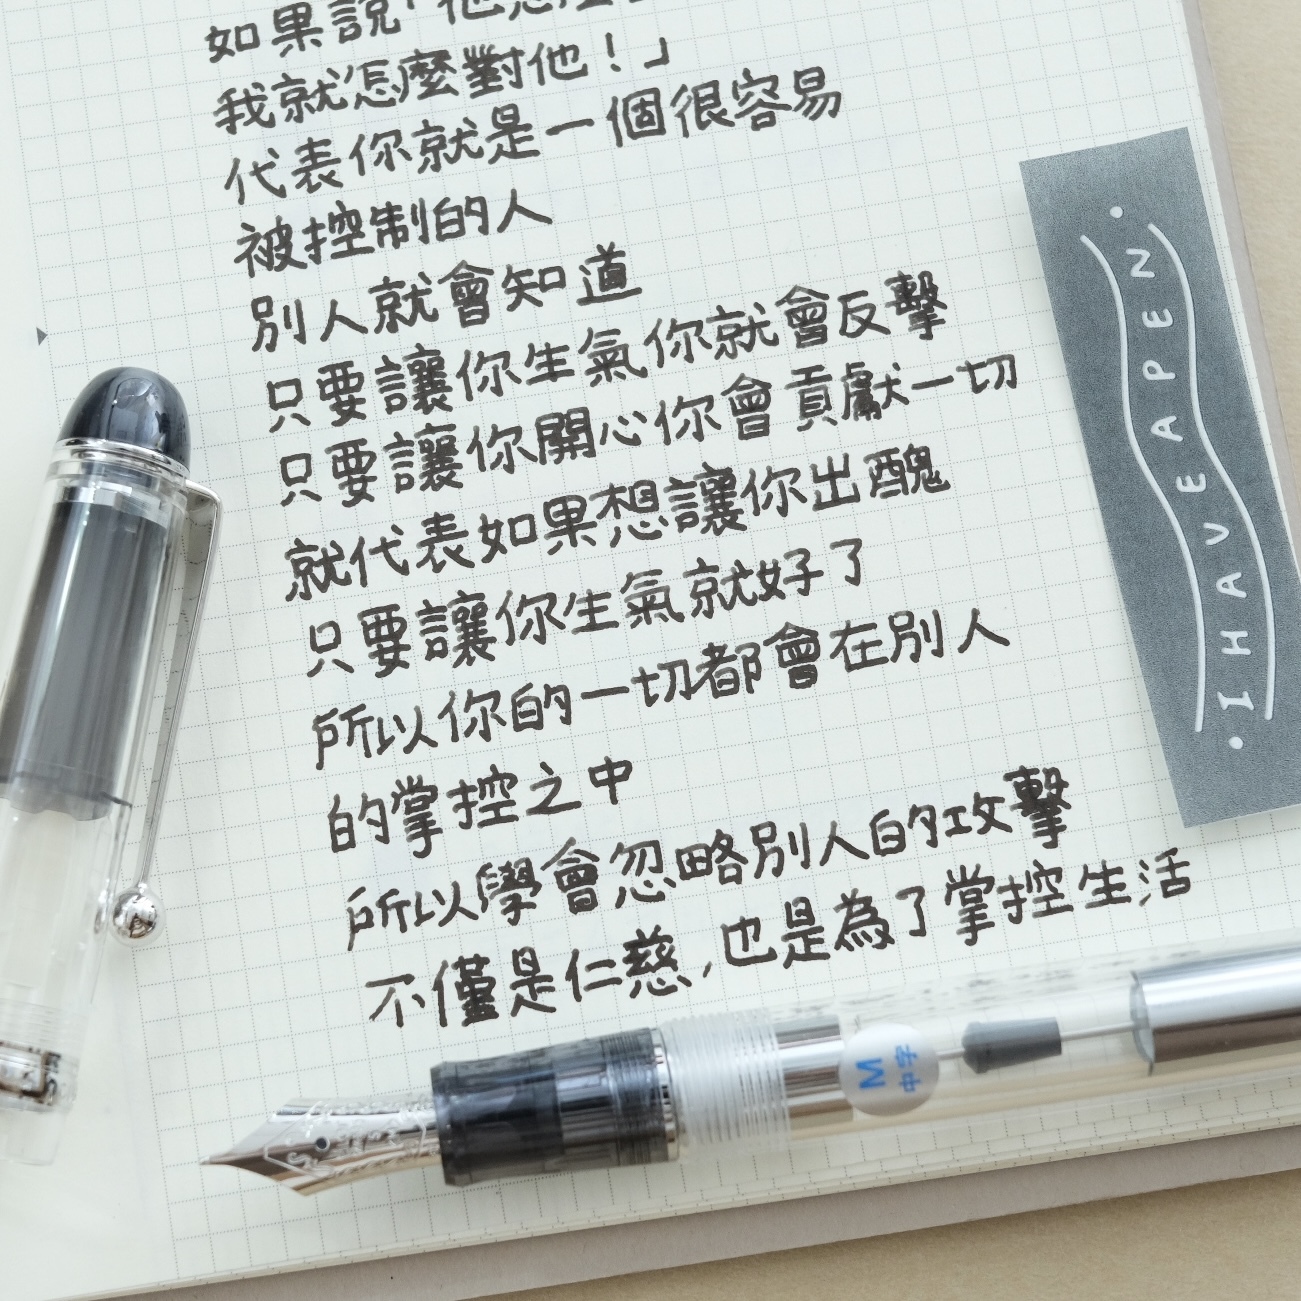 如果說「他怎麼
我就怎麼對他！」
代表你就是一個很容易
被控制的人
別人就會知道
只要讓你生氣你就會反擊
只要讓你開心你會貢獻一切
就代表如果想讓你出醜
只要讓你生氣就好了
所以你的一切都會在別人
的掌控之中
所以學會忽略別人的攻擊
不僅是仁慈，也是為了掌控生活
• I HAVE A PEN •
M
中字